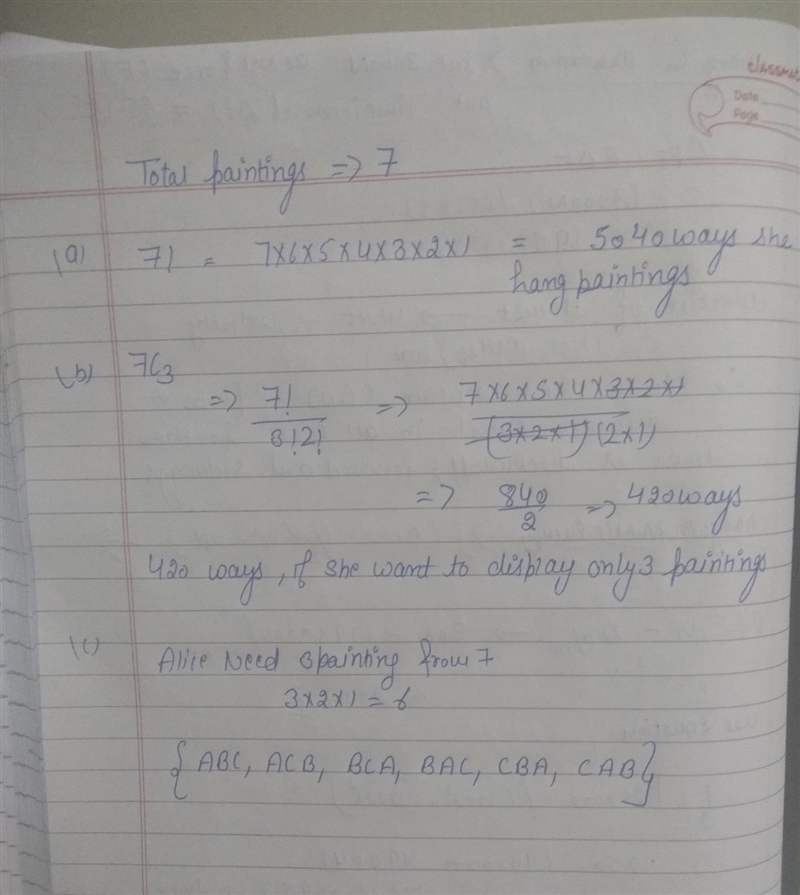 classmate
Date
Page
Total paintings => 7
(a) 7! = 7x6x5x4x3x2x1 = 5040 ways she
hang paintings
(b) 7C3
=> 7! / 3!2! => 7x6x5x4x3x2x1 / (3x2x1)(2x1)
=> 840 / 2 => 420 ways
420 ways, if she want to display only 3 paintings
(c) Alice Need 3 painting from 7
3x2x1 = 6
{ ABC, ACB, BCA, BAC, CBA, CAB}